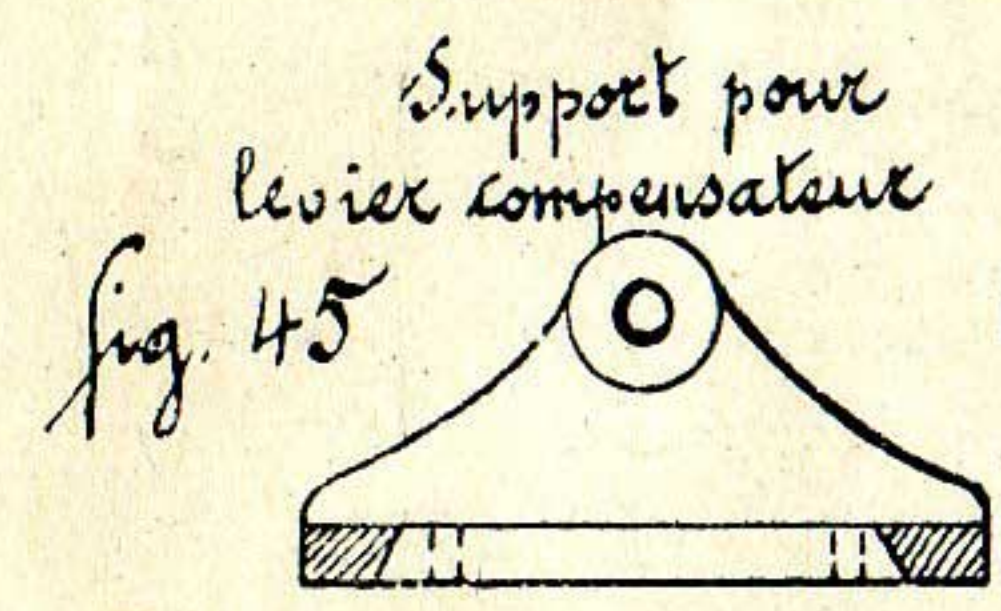 Support pour
levier compensateur
fig. 45